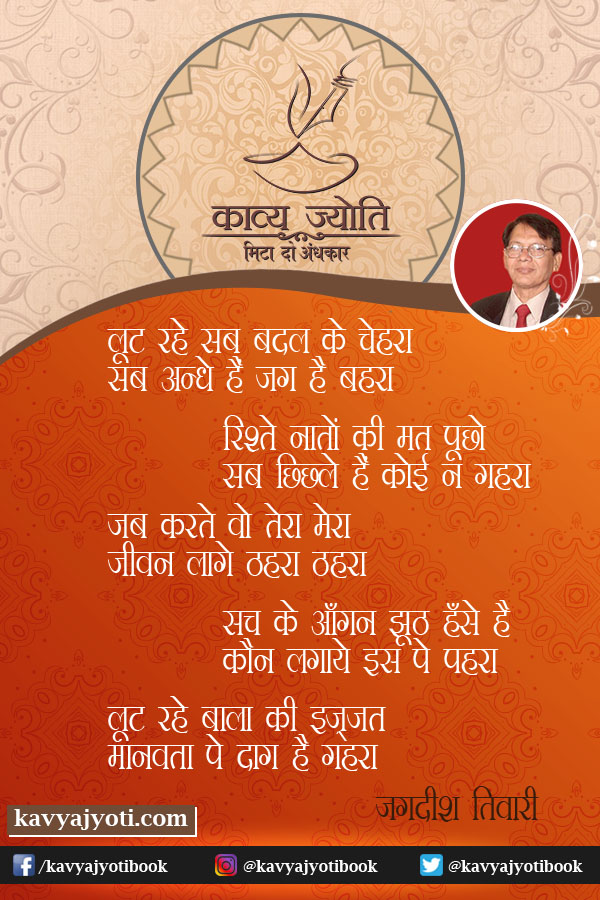 काव्य ज्योति
मिटा दो अंधकार
लूट रहे सब बदल के चेहरा
सब अन्धे हैं जग है बहरा
रिश्ते नातों की मत पूछो
सब छिछले हैं कोई न गहरा
जब करते वो तेरा मेरा
जीवन लागे ठहरा ठहरा
सच के आँगन झूठ हँसे है
कौन लगाये इस पे पहरा
लूट रहे बाला की इज्जत
मानवता पे दाग है गहरा
जगदीश तिवारी
kavyajyoti.com
/kavyajyotibook @kavyajyotibook @kavyajyotibook